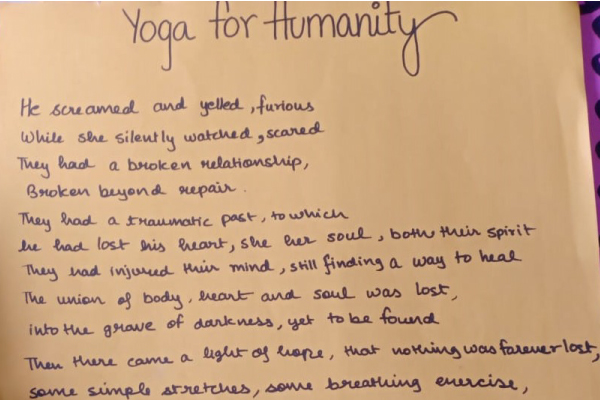 Yoga for Humanity
He screamed and yelled, furious
While she silently watched, scared
They had a broken relationship,
Broken beyond repair.
They had a traumatic past, to which
he had lost his heart, she her soul, both their spirit
They had injured their mind, still finding a way to heal
The union of body, heart and soul was lost,
into the grave of darkness, yet to be found
Then there came a light of hope, that nothing was forever lost,
some simple stretches, some breathing exercise,